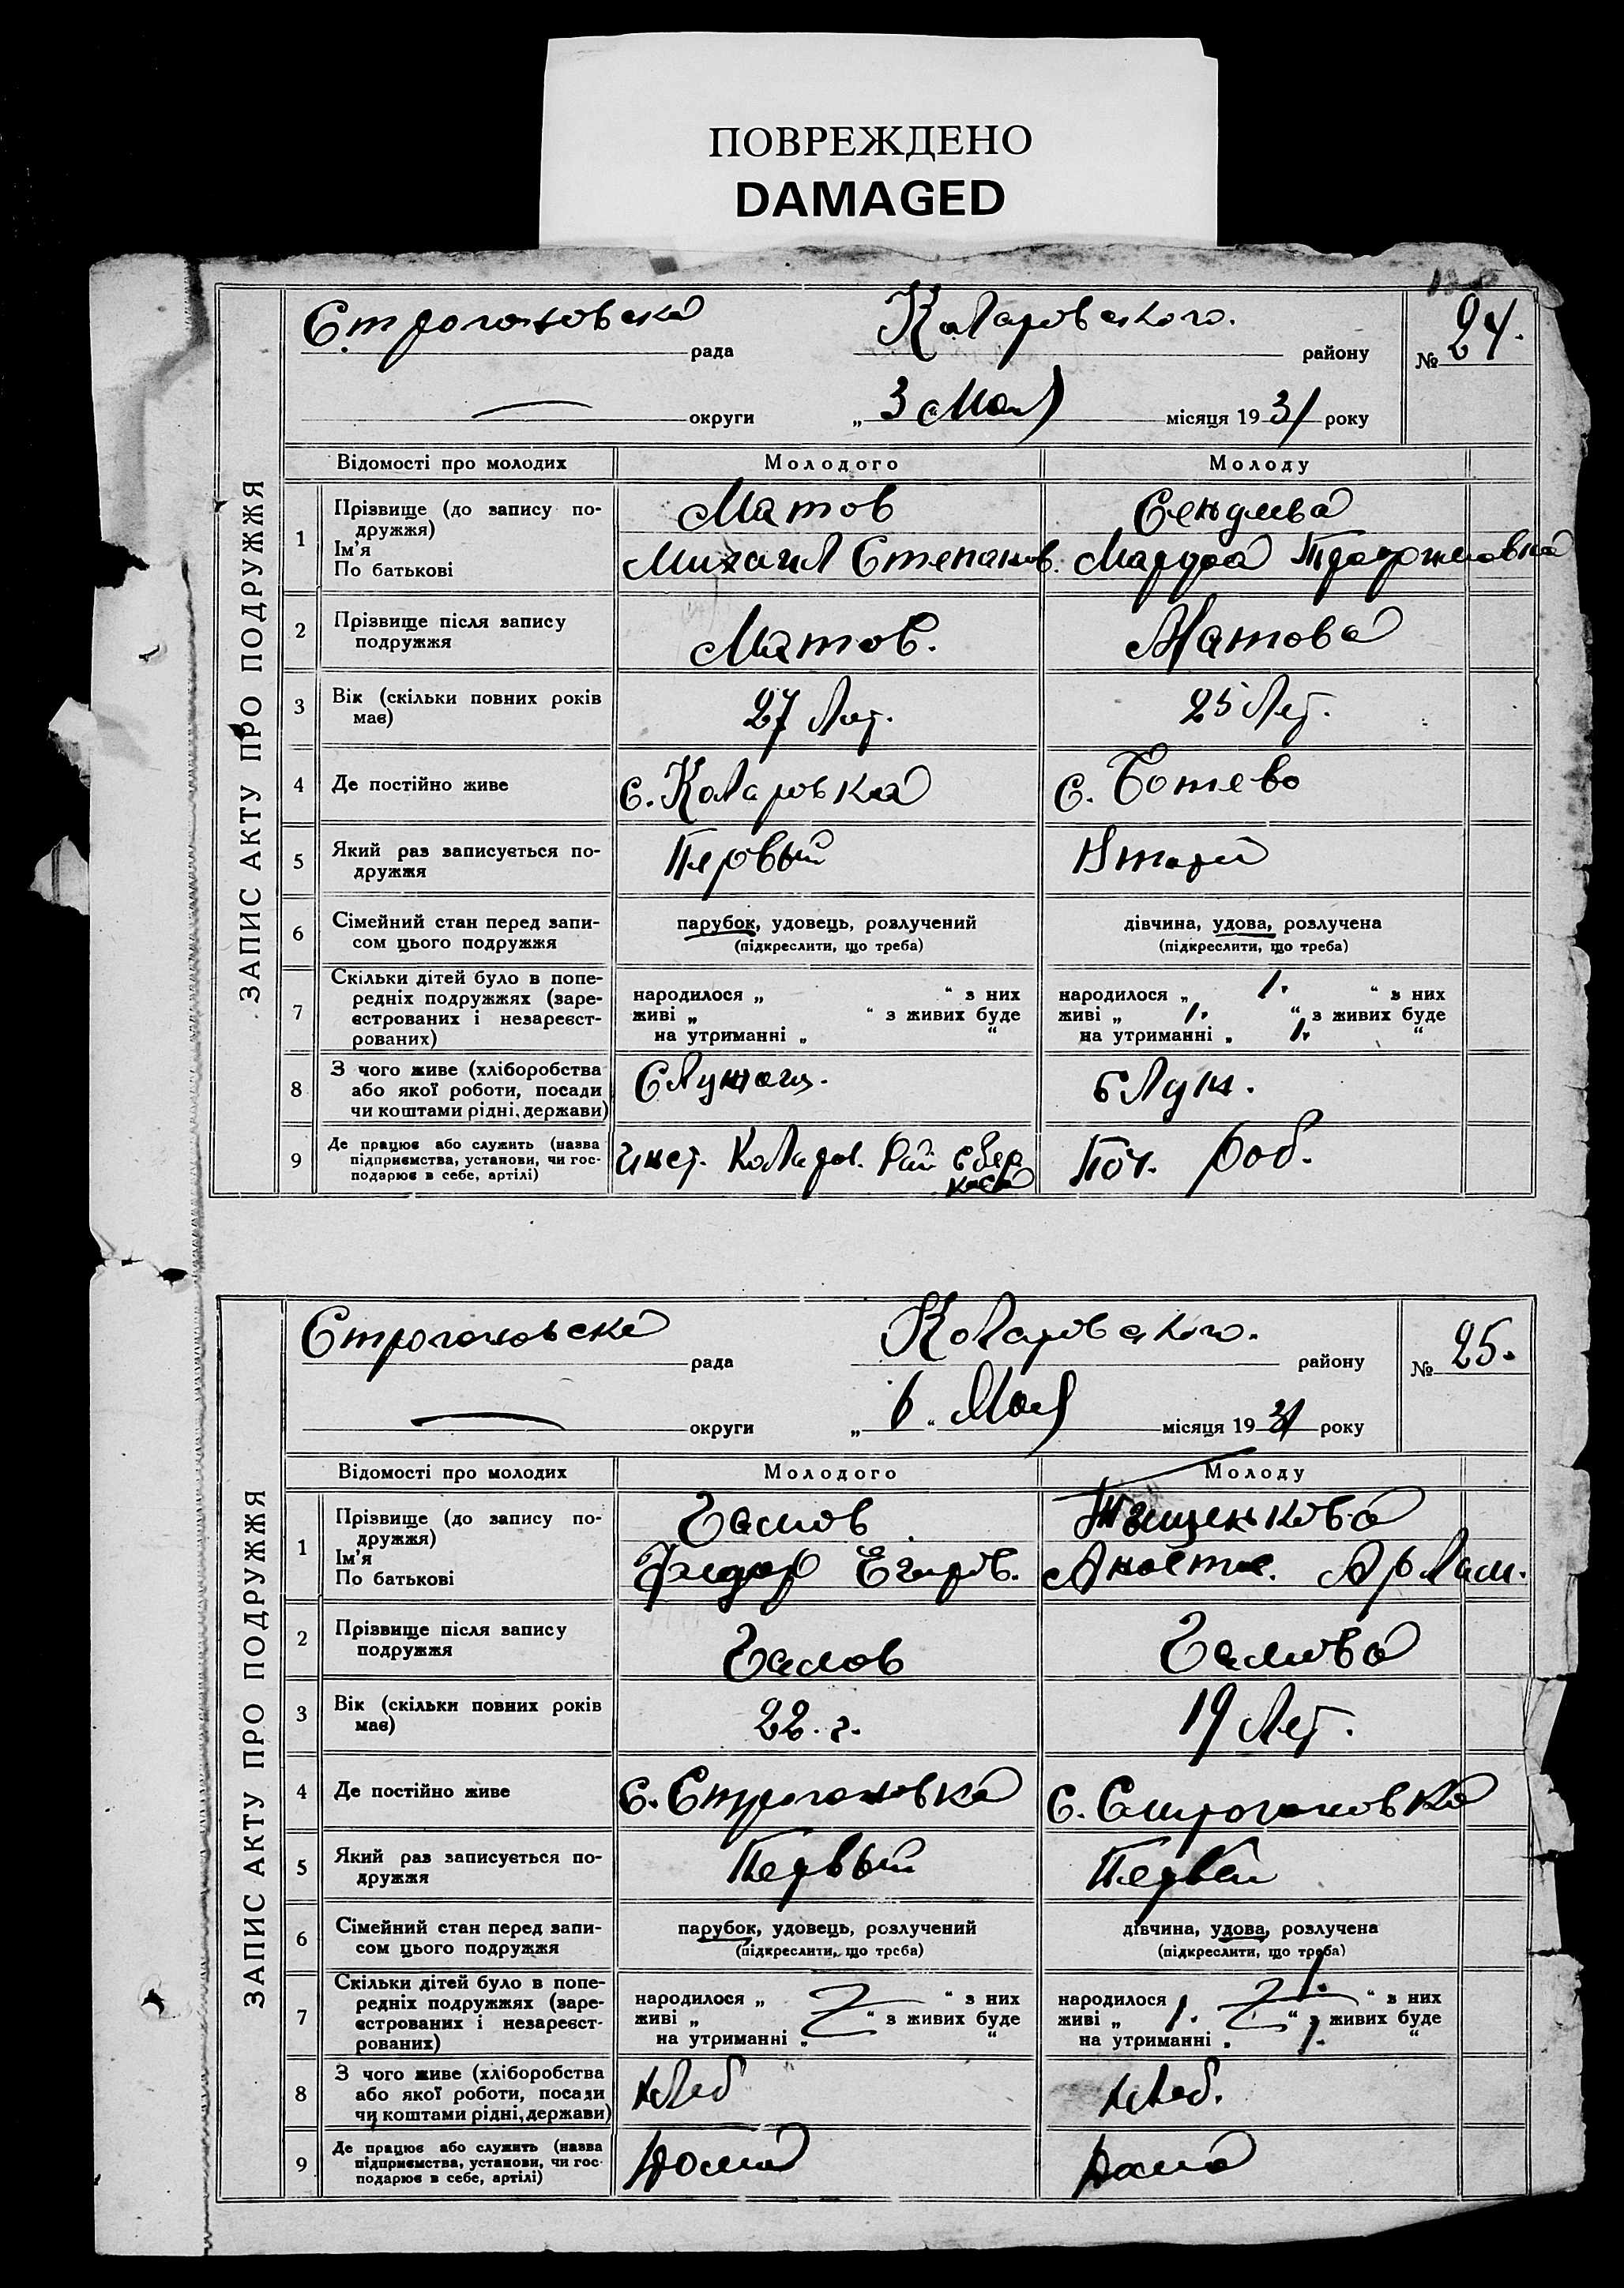 ПОВРЕЖДЕНО
DAMAGED
ЗАПИС АКТУ ПРО ПОДРУЖЖЯ
Строгоновска рада Коларовского. району № 24.
округи „ 3 “ Мая місяця 1931 року
Відомості про молодих Молодого Молоду
1 Прізвище (до запису по-
дружжя)
Ім’я
По батькові
Матов
Михаил Степанов.
Марфа
2 Прізвище після запису
подружжя
Матов. Матова
3 Вік (скільки повних років
має)
27 Лет. 25 Лет.
4 Де постійно живе с. Коларовка с. Ботево
5 Який раз записується по-
дружжя
Первый Втарой
6 Сімейний стан перед запи-
сом цього подружжя
парубок, удовець, розлучений
(підкреслити, що треба)
дівчина, удова, розлучена
(підкреслити, що треба)
7 Скільки дітей було в попе-
редніх подружжях (заре-
єстрованих і незареєст-
рованих)
народилося „ “ з них
живі „ “ з живих буде
на утриманні „ “
народилося „ 1. “ з них
живі „ 1. “ з живих буде
на утриманні „ 1. “
8 З чого живе (хліборобства
або якої роботи, посади
чи коштами рідні, держави)
Служащ. Служ.
9 Де працює або служить (назва
підприємства, установи, чи гос-
подарює в себе, артілі)
Инст. Коларов. Рай сбер
касса
Поч. раб.
ЗАПИС АКТУ ПРО ПОДРУЖЖЯ
Строгоновска рада Коларовского. району № 25.
округи „ 6. “ Мая місяця 1931 року
Відомості про молодих Молодого Молоду
1 Прізвище (до запису по-
дружжя)
Ім’я
По батькові
Гамов
Федор Егоров.
Тищенкова
Анаста. Арлам.
2 Прізвище після запису
подружжя
Гамов Гамова
3 Вік (скільки повних років
має)
22. г. 19 Лет.
4 Де постійно живе с. Строгоновка с. Строгоновка
5 Який раз записується по-
дружжя
Первый Первый
6 Сімейний стан перед запи-
сом цього подружжя
парубок, удовець, розлучений
(підкреслити, що треба)
дівчина, удова, розлучена
(підкреслити, що треба)
7 Скільки дітей було в попе-
редніх подружжях (заре-
єстрованих і незареєст-
рованих)
народилося „ “ з них
живі „ “ з живих буде
на утриманні „ “
народилося 1. “ з них
живі „ 1. “ з живих буде
на утриманні „ 1. “
8 З чого живе (хліборобства
або якої роботи, посади
чи коштами рідні, держави)
хлеб хлеб.
9 Де працює або служить (назва
підприємства, установи, чи гос-
подарює в себе, артілі)
Дома Дома